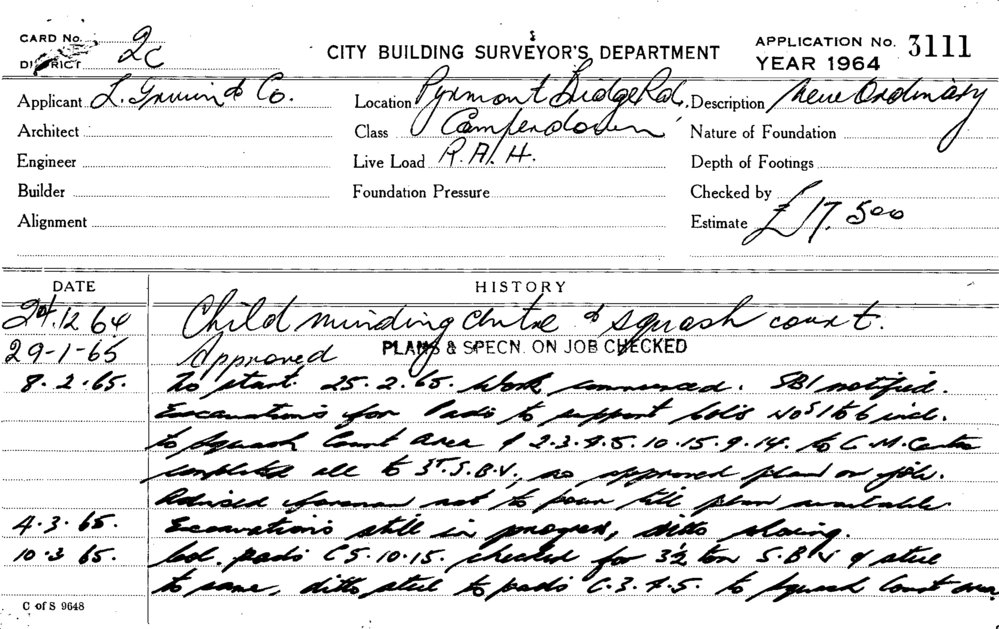 CARD No. 2c
DISTRICT
CITY BUILDING SURVEYOR'S DEPARTMENT
APPLICATION No. 3111
YEAR 1964
Applicant L. Irwin & Co.
Location Pyrmont Bridge Rd,
Description New Ordinary
Architect
Class Camperdown
Nature of Foundation
Engineer
Live Load R.A.H.
Depth of Footings
Builder
Foundation Pressure
Checked by
Alignment
Estimate £17.500
DATE HISTORY
24.12.64 Child minding centre & squash court.
29-1-65 Approved PLANS & SPECN. ON JOB CHECKED
8.2.65. To start 25.2.65. Work commenced. SBI notified.
Excavations for Pads to support Cols Nos 1 to 6 incl.
to Squash Court area & 2.3.4.5.10.15.9.14. to C.M. Centre
completed all to 3T.S.B.V, no approved plan on job.
Advised foreman not to pour till plan available.
4.3.65. Excavations still in progress, ditto placing.
10.3.65. Col. pads C 5.10.15. checked for 3½ ton S.B.V & steel
to same, ditto steel to pads C.3.4.5. to Squash Court area
C of S 9648